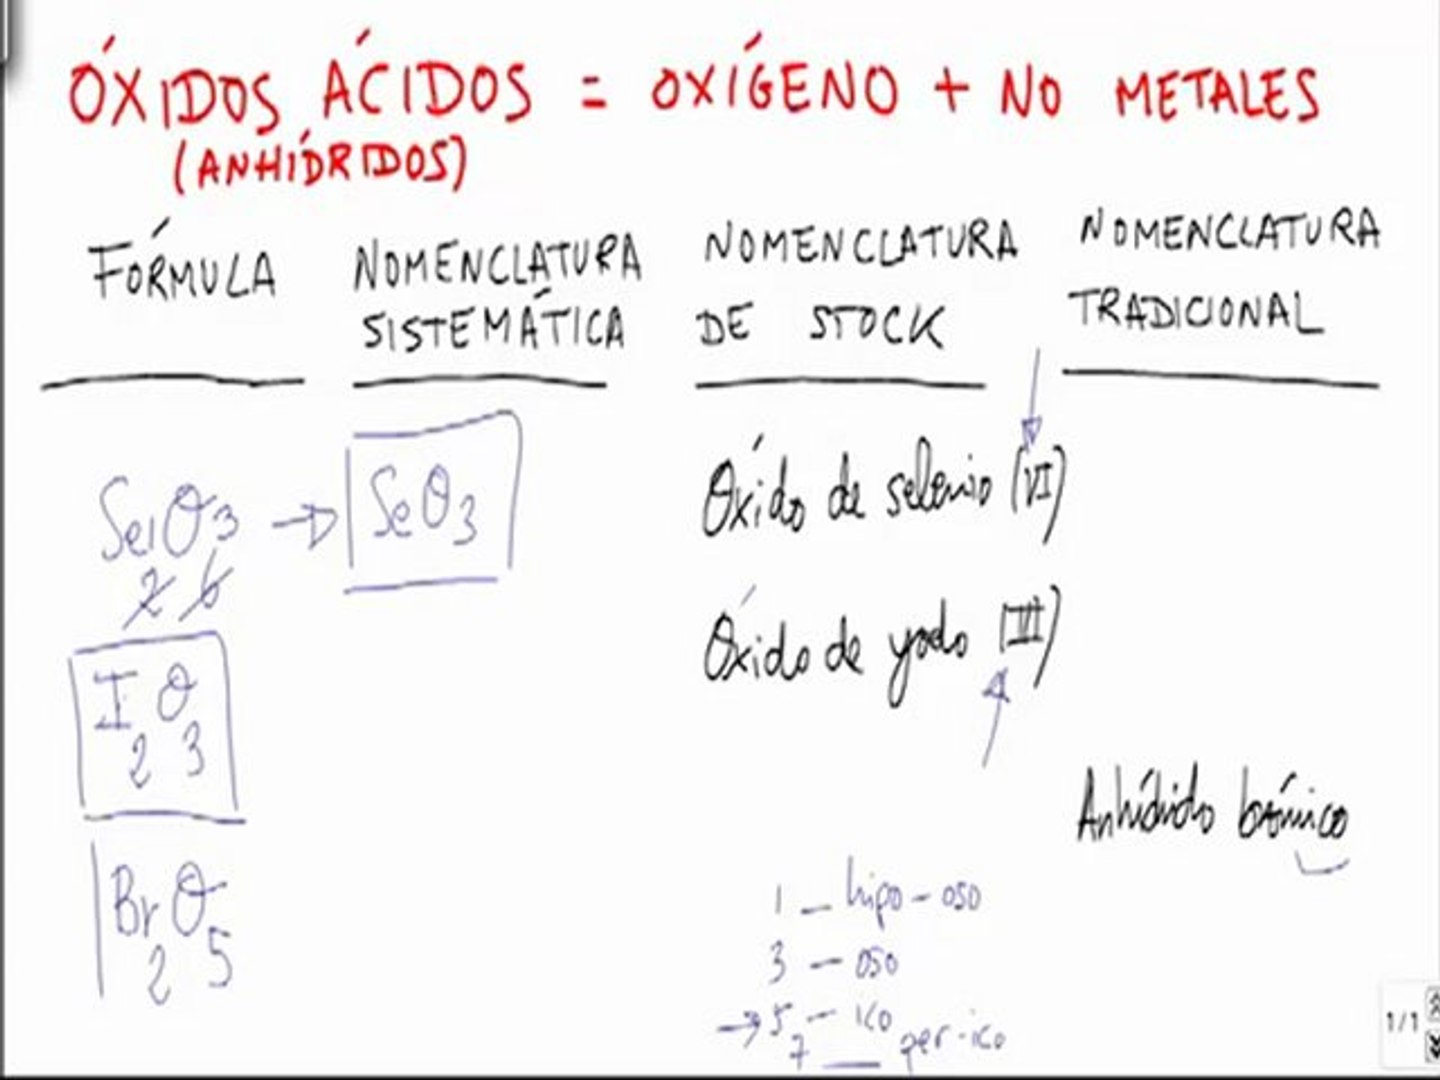 ÓXIDOS ÁCIDOS = OXÍGENO + NO METALES
(ANHÍDRIDOS)
FÓRMULA
NOMENCLATURA
SISTEMÁTICA
NOMENCLATURA
DE STOCK
NOMENCLATURA
TRADICIONAL
Se1O3 → SeO3
2 6
Óxido de selenio (VI)
I2O3
Óxido de yodo (III)
Br2O5
Anhídrido brómico
1 – hipo – oso
3 – oso
→ 5 – ico
7 — per-ico
1/1